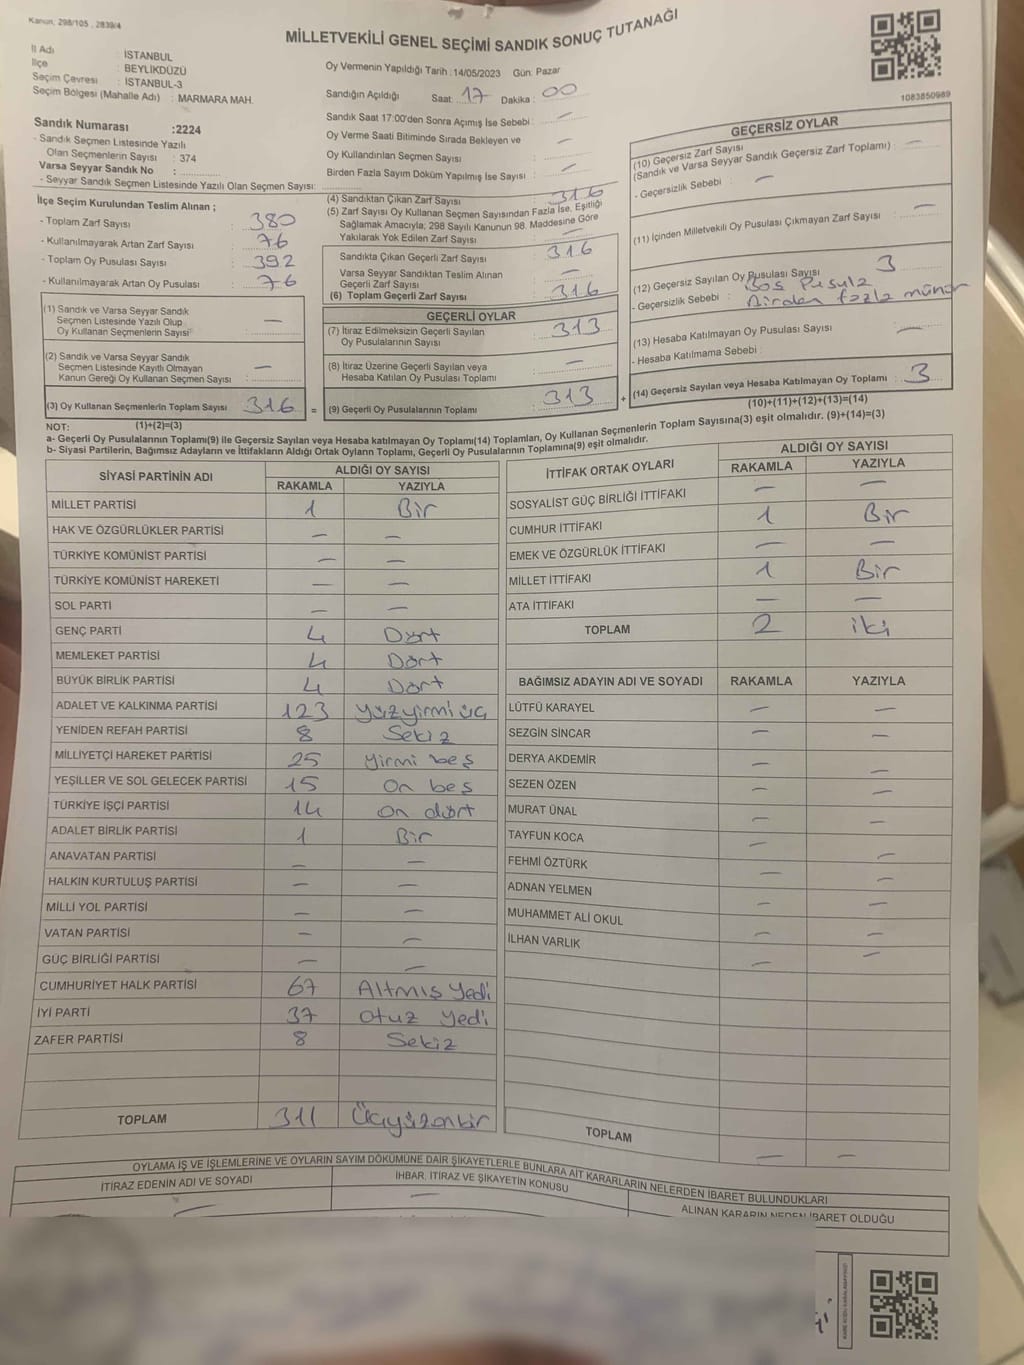 Kanun, 298/105 , 2839/4
MİLLETVEKİLİ GENEL SEÇİMİ SANDIK SONUÇ TUTANAĞI
1083850989
İl Adı : İSTANBUL
İlçe : BEYLİKDÜZÜ
Seçim Çevresi : İSTANBUL-3
Seçim Bölgesi (Mahalle Adı) : MARMARA MAH.
Sandık Numarası :2224
- Sandık Seçmen Listesinde Yazılı
Olan Seçmenlerin Sayısı : 374
Varsa Seyyar Sandık No :
- Seyyar Sandık Seçmen Listesinde Yazılı Olan Seçmen Sayısı:
Oy Vermenin Yapıldığı Tarih :14/05/2023 Gün: Pazar
Sandığın Açıldığı Saat: 17 Dakika : 00
Sandık Saat 17:00'den Sonra Açımış İse Sebebi : —
Oy Verme Saati Bitiminde Sırada Bekleyen ve
Oy Kullandırılan Seçmen Sayısı : —
Birden Fazla Sayım Döküm Yapılmış İse Sayısı : —
İlçe Seçim Kurulundan Teslim Alınan ;
- Toplam Zarf Sayısı : 380
- Kullanılmayarak Artan Zarf Sayısı : 76
- Toplam Oy Pusulası Sayısı : 392
- Kullanılmayarak Artan Oy Pusulası : 76
(1) Sandık ve Varsa Seyyar Sandık
Seçmen Listesinde Yazılı Olup
Oy Kullanan Seçmenlerin Sayısı : —
(2) Sandık ve Varsa Seyyar Sandık
Seçmen Listesinde Kayıtlı Olmayan
Kanun Gereği Oy Kullanan Seçmen Sayısı : —
(3) Oy Kullanan Seçmenlerin Toplam Sayısı 316 =
(1)+(2)=(3)
(4) Sandıktan Çıkan Zarf Sayısı : 316
(5) Zarf Sayısı Oy Kullanan Seçmen Sayısından Fazla İse, Eşitliği
Sağlamak Amacıyla; 298 Sayılı Kanunun 98. Maddesine Göre
Yakılarak Yok Edilen Zarf Sayısı : —
Sandıkta Çıkan Geçerli Zarf Sayısı : 316
Varsa Seyyar Sandıktan Teslim Alınan
Geçerli Zarf Sayısı : —
(6) Toplam Geçerli Zarf Sayısı 316
GEÇERLİ OYLAR
(7) İtiraz Edilmeksizin Geçerli Sayılan
Oy Pusulalarının Sayısı : 313
(8) İtiraz Üzerine Geçerli Sayılan veya
Hesaba Katılan Oy Pusulası Toplamı : —
(9) Geçerli Oy Pusulalarının Toplamı : 313 +
GEÇERSİZ OYLAR
(10) Geçersiz Zarf Sayısı
(Sandık ve Varsa Seyyar Sandık Geçersiz Zarf Toplamı) : —
- Geçersizlik Sebebi : —
(11) İçinden Milletvekili Oy Pusulası Çıkmayan Zarf Sayısı : —
(12) Geçersiz Sayılan Oy Pusulası Sayısı : 3
- Geçersizlik Sebebi : Boş Pusula
Birden fazla mühür
(13) Hesaba Katılmayan Oy Pusulası Sayısı : —
- Hesaba Katılmama Sebebi :
(14) Geçersiz Sayılan veya Hesaba Katılmayan Oy Toplamı : 3
(10)+(11)+(12)+(13)=(14)
NOT:
a- Geçerli Oy Pusulalarının Toplamı(9) ile Geçersiz Sayılan veya Hesaba katılmayan Oy Toplamı(14) Toplamları, Oy Kullanan Seçmenlerin Toplam Sayısına(3) eşit olmalıdır. (9)+(14)=(3)
b- Siyasi Partilerin, Bağımsız Adayların ve İttifakların Aldığı Ortak Oyların Toplamı, Geçerli Oy Pusulalarının Toplamına(9) eşit olmalıdır.
SİYASİ PARTİNİN ADI ALDIĞI OY SAYISI
RAKAMLA YAZIYLA
MİLLET PARTİSİ 1 Bir
HAK VE ÖZGÜRLÜKLER PARTİSİ — —
TÜRKİYE KOMÜNİST PARTİSİ — —
TÜRKİYE KOMÜNİST HAREKETİ — —
SOL PARTİ — —
GENÇ PARTİ 4 Dört
MEMLEKET PARTİSİ 4 Dört
BÜYÜK BİRLİK PARTİSİ 4 Dört
ADALET VE KALKINMA PARTİSİ 123 yüzyirmi üç
YENİDEN REFAH PARTİSİ 8 Sekiz
MİLLİYETÇİ HAREKET PARTİSİ 25 yirmi beş
YEŞİLLER VE SOL GELECEK PARTİSİ 15 On beş
TÜRKİYE İŞÇİ PARTİSİ 14 On dört
ADALET BİRLİK PARTİSİ 1 Bir
ANAVATAN PARTİSİ — —
HALKIN KURTULUŞ PARTİSİ — —
MİLLİ YOL PARTİSİ — —
VATAN PARTİSİ — —
GÜÇ BİRLİĞİ PARTİSİ — —
CUMHURİYET HALK PARTİSİ 67 Altmış Yedi
İYİ PARTİ 37 Otuz Yedi
ZAFER PARTİSİ 8 Sekiz
TOPLAM 311 Üçyüzonbir
İTTİFAK ORTAK OYLARI ALDIĞI OY SAYISI
RAKAMLA YAZIYLA
SOSYALİST GÜÇ BİRLİĞİ İTTİFAKI — —
CUMHUR İTTİFAKI 1 Bir
EMEK VE ÖZGÜRLÜK İTTİFAKI — —
MİLLET İTTİFAKI 1 Bir
ATA İTTİFAKI — —
TOPLAM 2 iki
BAĞIMSIZ ADAYIN ADI VE SOYADI RAKAMLA YAZIYLA
LÜTFÜ KARAYEL — —
SEZGİN SİNCAR — —
DERYA AKDEMİR — —
SEZEN ÖZEN — —
MURAT ÜNAL — —
TAYFUN KOCA — —
FEHMİ ÖZTÜRK — —
ADNAN YELMEN — —
MUHAMMET ALİ OKUL — —
İLHAN VARLIK — —
TOPLAM — —
OYLAMA İŞ VE İŞLEMLERİNE VE OYLARIN SAYIM DÖKÜMÜNE DAİR ŞİKAYETLERLE BUNLARA AİT KARARLARIN NELERDEN İBARET BULUNDUKLARI
İTİRAZ EDENİN ADI VE SOYADI
İHBAR, İTİRAZ VE ŞİKAYETİN KONUSU
ALINAN KARARIN NEDEN İBARET OLDUĞU